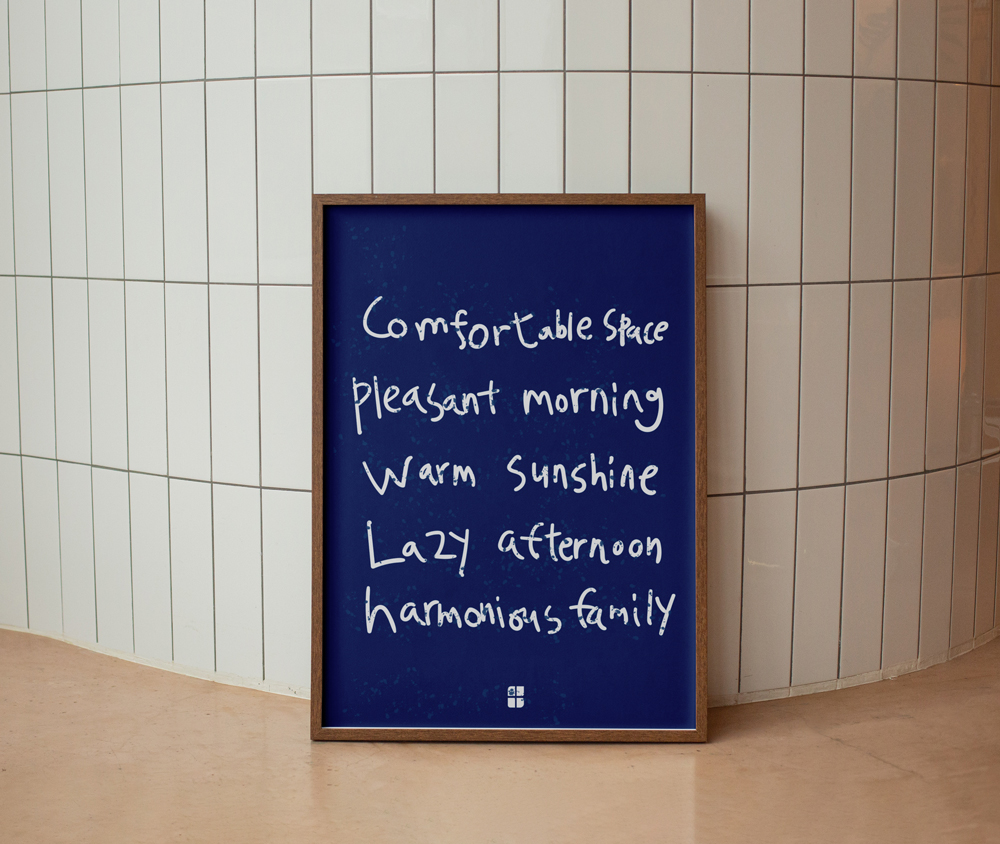 Comfortable Space
pleasant morning
Warm sunshine
Lazy afternoon
harmonious family